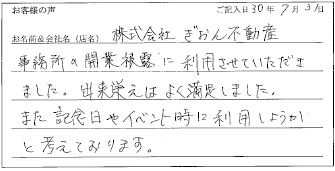 お客様の声 ご記入日 30年 7月 3日
お名前&会社名(店名) 株式会社 ぎおん不動産
事務所の開業披露に利用させていただき
ました。出来栄えはよく満足しました。
また記念日やイベント時に利用しようか
と考えております。